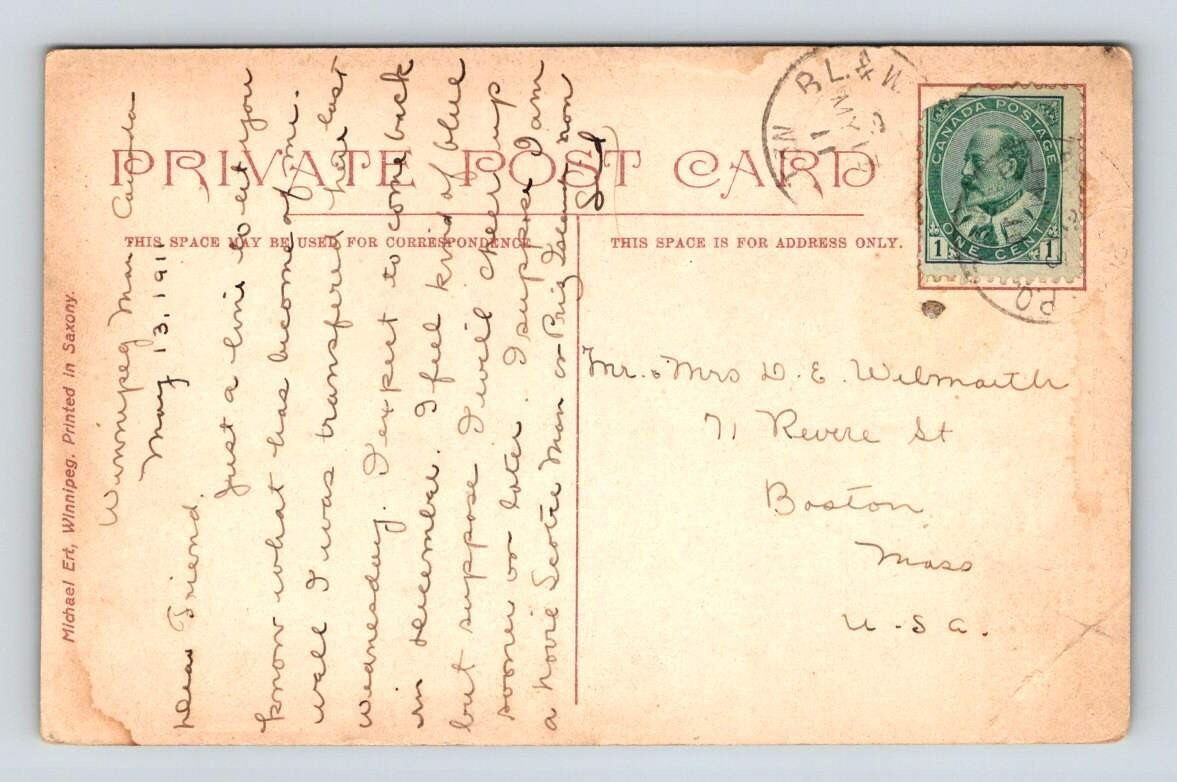 PRIVATE POST CARD
THIS SPACE MAY BE USED FOR CORRESPONDENCE
THIS SPACE IS FOR ADDRESS ONLY.
Michael Ert, Winnipeg. Printed in Saxony.
Winnipeg Man Canada
May 13, 191
Dear Friend.
Just a line to let you
know what has become of me.
well I was transfered here last
Wednesday. I expect to come back
in december. I feel kind of blue
but suppose I will cheer up
sooner or later. I suppose I am
a Scotie Man or
CANADA POSTAGE
1 ONE CENT 1
Mr. & Mrs D. E. Wilmarth
71 Revere St
Boston
Mass
U.S.A.